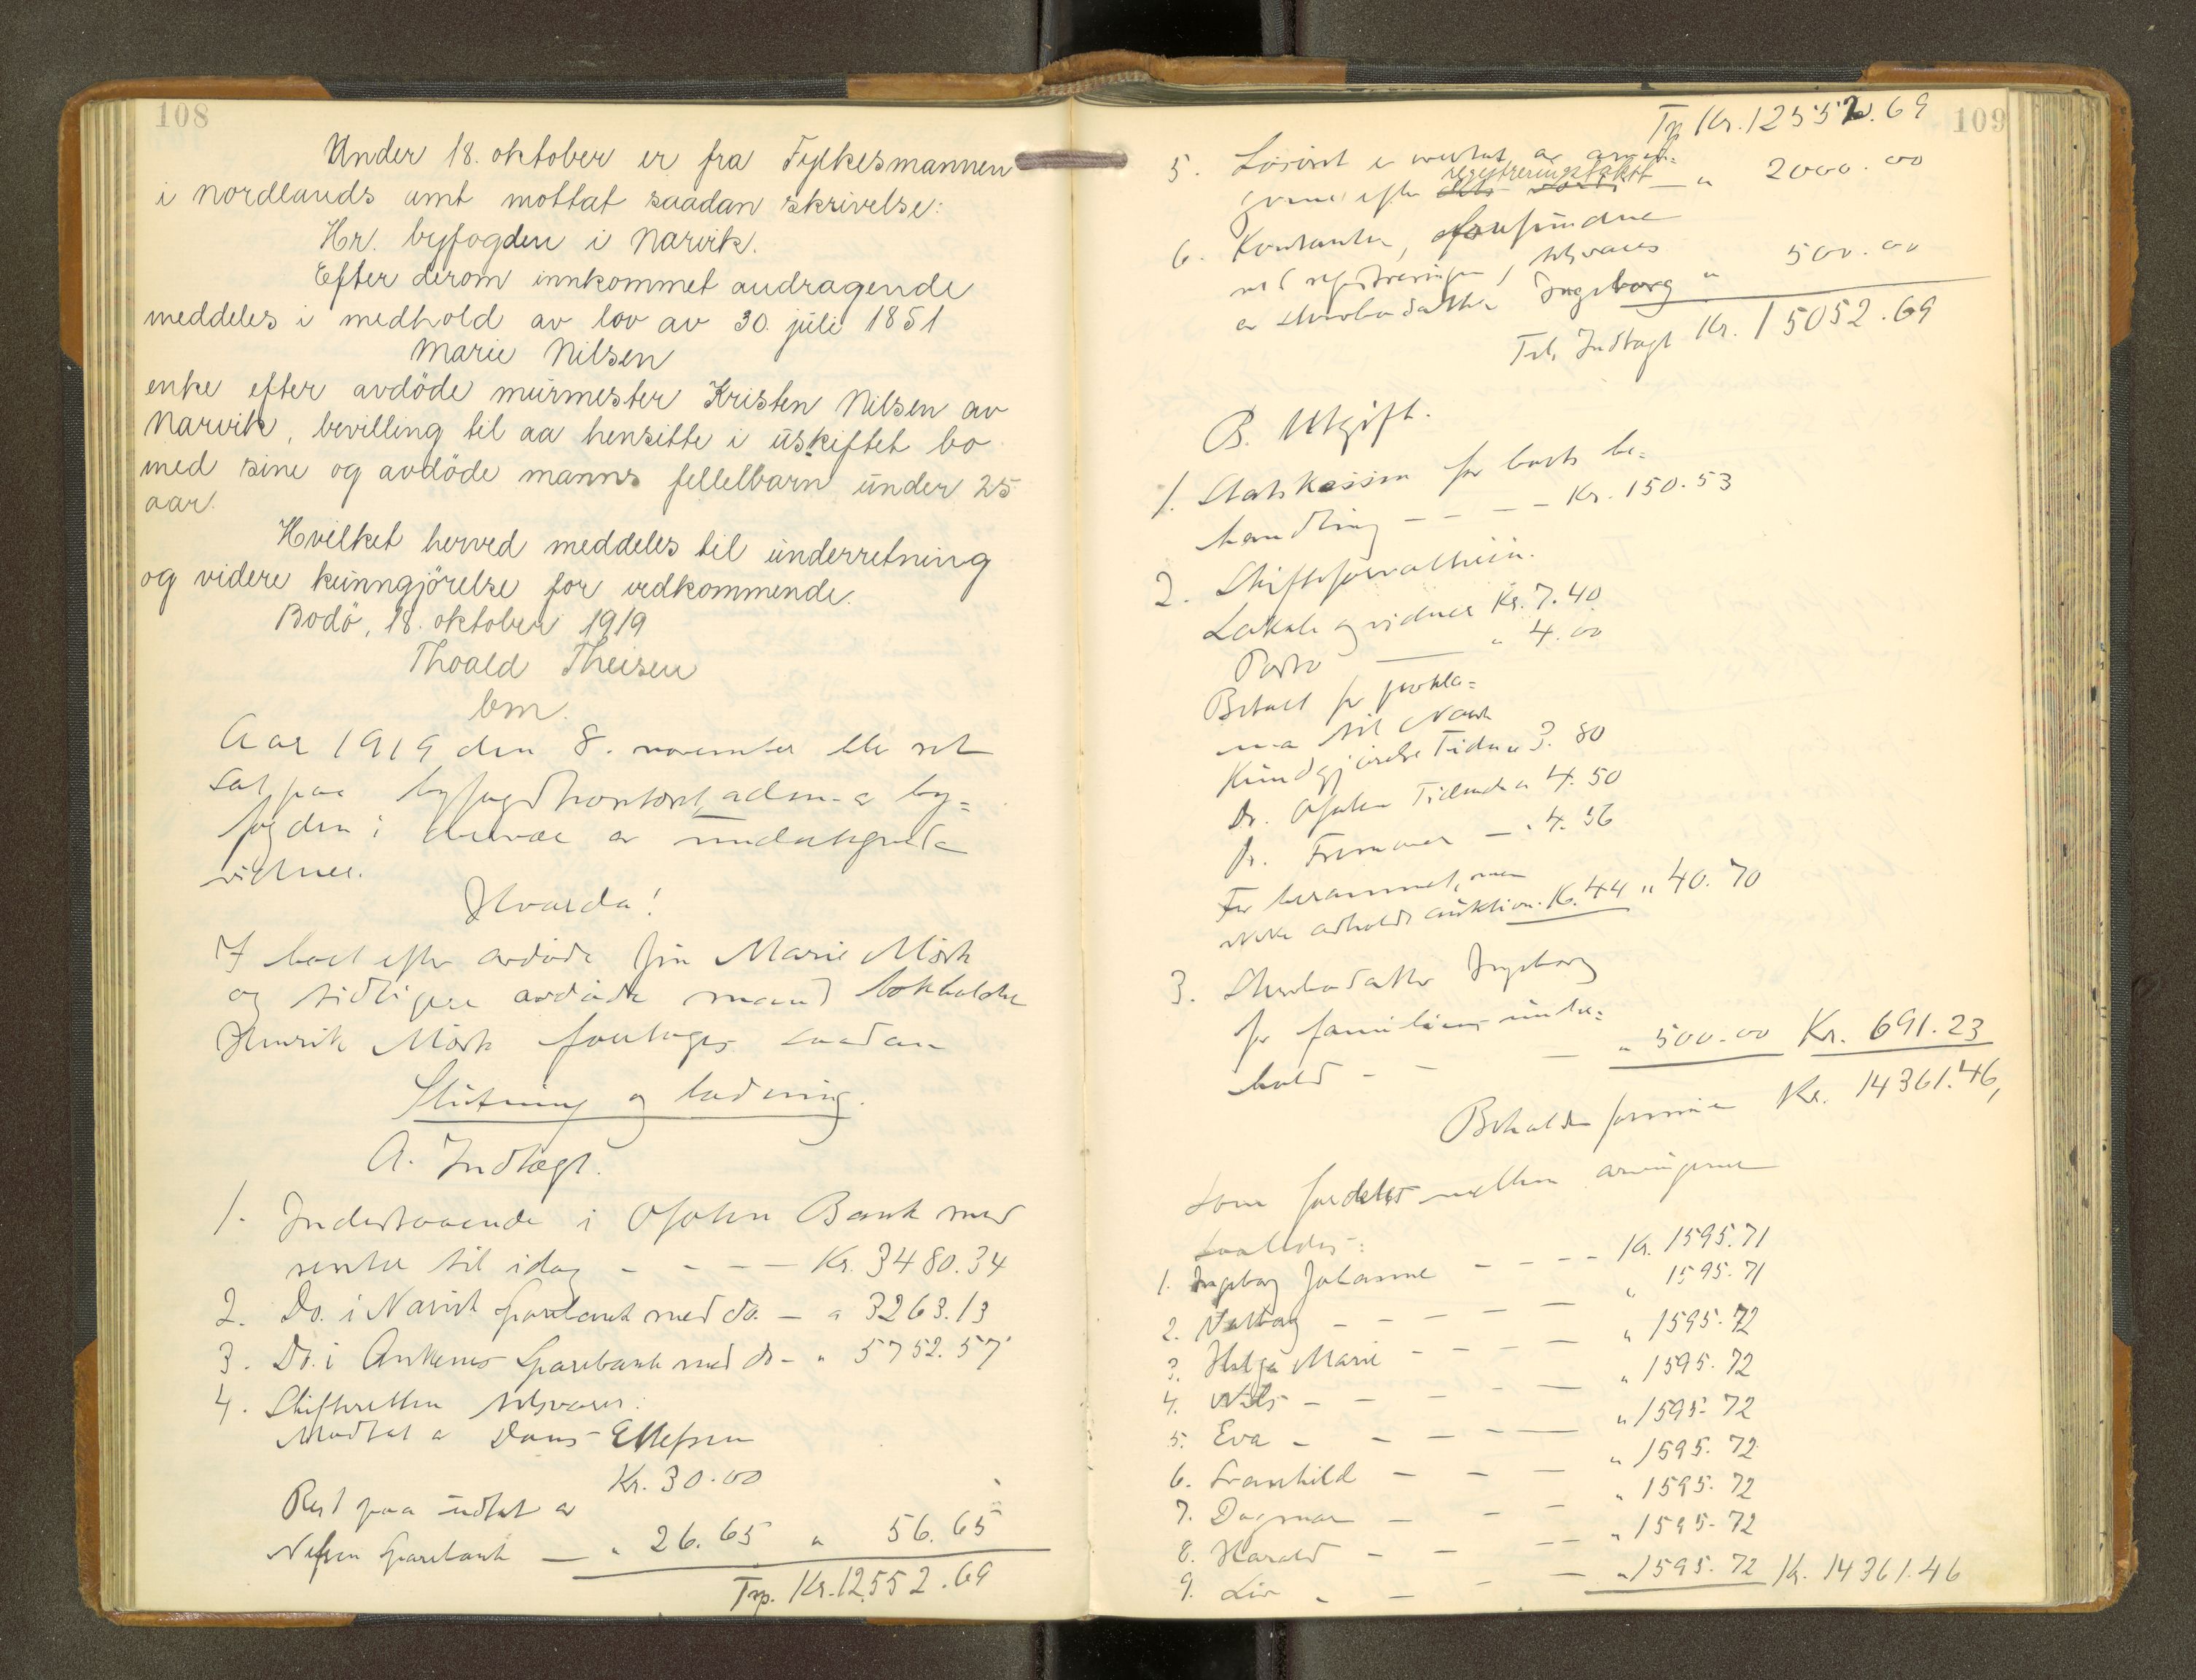 108
Under 18. oktober er fra Fylkesmannen
i Nordlands amt mottat saadan skrivelse:
Hr. byfogden i Narvik.
Efter derom innkommet andragende
meddeles i medhold av lov av 30. juli 1851
Marie Nilsen
enke efter avdöde murmester Kristen Nilsen av
Narvik, bevilling til aa hensitte i uskiftet bo
med sine og avdöde manns fellelbarn under 25
aar.
Hvilket herved meddeles til underretning
og videre kunngjörelse for vedkommende.
Bodö, 18. oktober 1919
Thoald Theisen
bm.
Aar 1919 den 8. november ble ret
sat paa byfogdkontoret, adm. av by=
fogden i nærvær av undertegnede
vidner.
Hvorda!
I boet efter avdöde fru Marie Mörk
og tidligere avdöde mand bokholder
Henrik Mörk foretages saadan
Slutning og lodning.
A. Indtægt.
1. Indestaaende i Ofoten Bank med
renter til idag - - - - Kr. 3480.34
2. Do. i Narvik Sparebank med do. - " 3263.13
3. Do. i Ankenes Sparebank med do - " 5752.57
4. Skifteretten tilsvarer:
Modtat av Dons Ellefsen
Kr. 30.00
Rest paa uttat av
Sparebank — " 26.65 " 56.65
Trp. Kr. 12552.69
109
Trp Kr. 12552.69
5. Lösöret er av arvin=
gerne efter registreringstakst — " 2000.00
6. Kontanter, forefundne
ved registreringen, tilsvares
av stervbodatter Ingeborg " 500.00
Tils. Indtægt Kr. 15052.69
B. Utgift.
1. Statskassen for boets be=
handling - - - - Kr. 150.53
2. Skifteforvalteren.
Lokale og vidner Kr. 7.40
Porto — " 4.00
Betalt for prokla=
ma til Norsk
Kundgjörelse Tidende 3.80
Do. Ofoten Tidende " 4.50
Do. Fremover — " 4.56
For berammet, men
ikke avholdt auktion. K. 44 " 40.70
3. Stervbodatter Ingeborg
for familiens under=
hold - - — " 500.00 Kr. 691.23
Beholden formue Kr. 14361.46,
som fordeles mellem arvingerne
saaledes:
1. Ingeborg Johanne - - - - Kr. 1595.71
2. Valborg - - - - — " 1595.71
3. Helga Marie - - - - — " 1595.72
4. Nils - - - - — " 1595.72
5. Eva - - - - — " 1595.72
6. Svanhild - - — " 1595.72
7. Dagmar - - — " 1595.72
8. Harald - - — " 1595.72
9. Liv - - - — " 1595.72 Kr. 14361.46